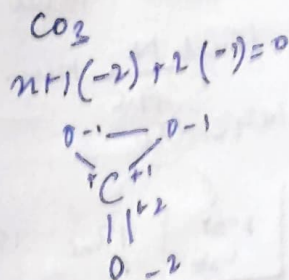 CO3
x+1(-2)+2(-1)=0
O-1 — O-1
+ C +1
+2
O -2